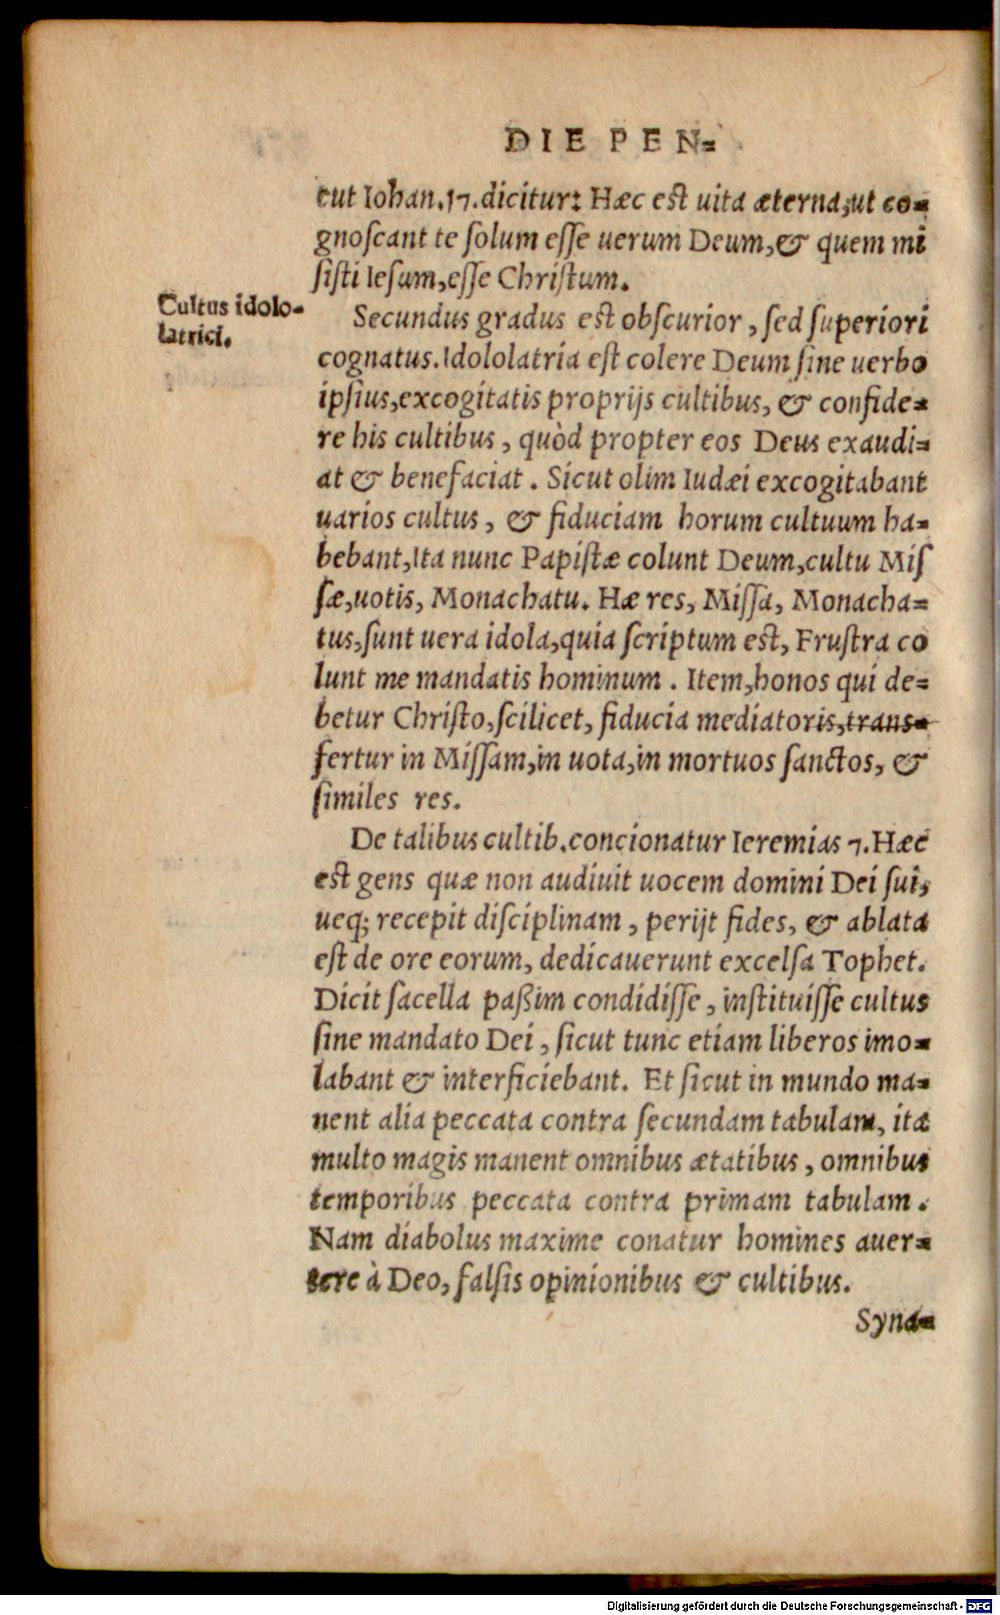 DIE PEN-
cut Iohan.17.dicitur: Hæc est uita æterna,ut co-
gnoſcant te ſolum eſſe uerum Deum,& quem mi
ſiſti Ieſum,eſſe Chriſtum.
Cultus idolo-
latrici.
Secundus gradus est obſcurior, ſed ſuperiori
cognatus. Idololatria eſt colere Deum ſine uerbo
ipſius,excogitatis proprijs cultibus, & confide-
re his cultibus, quòd propter eos Deus exaudi-
at & benefaciat. Sicut olim Iudæi excogitabant
uarios cultus, & fiduciam horum cultuum ha-
bebant,Ita nunc Papiſtæ colunt Deum,cultu Miſ
ſæ,uotis, Monachatu. Hæ res, Miſſa, Monacha-
tus,ſunt uera idola,quia ſcriptum est, Fruſtra co
lunt me mandatis hominum. Item,honos qui de-
betur Chriſto,ſcilicet, fiducia mediatoris,trans-
fertur in Miſſam,in uota,in mortuos ſanctos, &
ſimiles res.
De talibus cultib.concionatur Ieremias 7.Hæc
est gens quæ non audiuit uocem domini Dei ſui,
neq; recepit diſciplinam, perijt fides, & ablata
eſt de ore eorum, dedicauerunt excelſa Tophet.
Dicit ſacella paßim condidiſſe, inſtituiſſe cultus
ſine mandato Dei, ſicut tunc etiam liberos imo-
labant & interficiebant. Et ſicut in mundo ma-
nent alia peccata contra ſecundam tabulam, ita
multo magis manent omnibus ætatibus, omnibus
temporibus peccata contra primam tabulam.
Nam diabolus maxime conatur homines auer-
tere à Deo, falſis opinionibus & cultibus.
Syna-
Digitalisierung gefördert durch die Deutsche Forschungsgemeinschaft - DFG